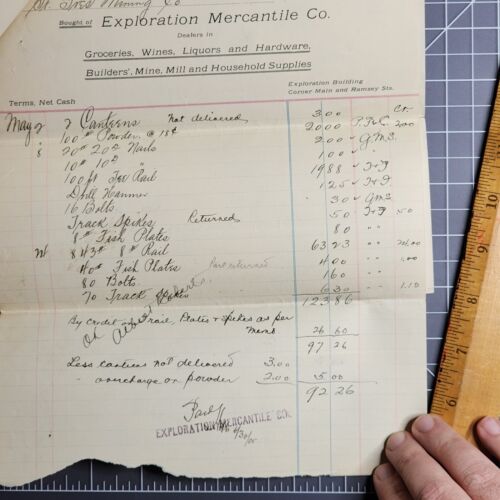 Mining Co
Bought of Exploration Mercantile Co.
Dealers in
Groceries, Wines, Liquors and Hardware,
Builders', Mine, Mill and Household Supplies
Exploration Building
Corner Main and Ramsey Sts.
Terms, Net Cash
May 2 2 Canteens Not delivered 3 00 Cr.
100 # Powder @ 18¢ 20 00 2 00
8 20 # 20 d Nails 2 00 G.M.S.
10 # 10 d " 1 00 " "
100 ft Rail 19 88
Drill Hammer 1 25
16 Bolts 30 G.M.S.
Track Spikes Returned 50 50
8 # Fish Plates 80 " "
8 # Rail 63 23 " "
40 # Fish Plates Part returned 4 00 " " 1.00
80 Bolts 1 60 " "
70 Track Spikes 6 30 " " 1.10
123 86
By credit rail, Plates & Spikes as per
Memo 26 60
97 26
Less canteens not delivered 3.00
" overcharge on powder 2.00 5 00
92 26
Paid
EXPLORATION MERCANTILE CO.